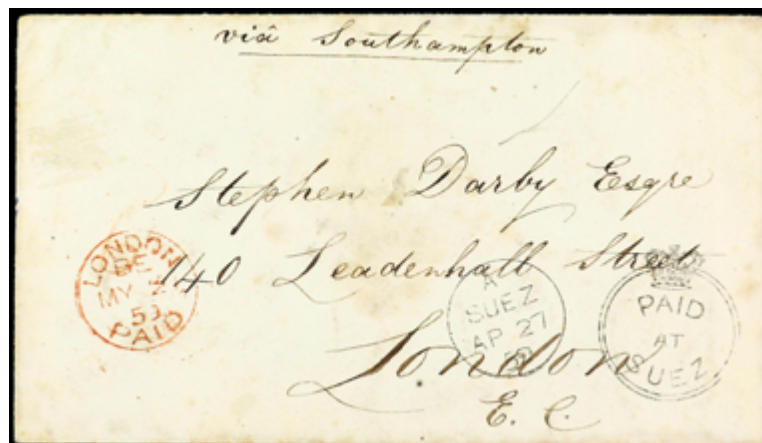 viâ Southampton
Stephen Darby Esqre
140 Leadenhall Street
London
E. C.
LONDON
MY
59
PAID
A
SUEZ
AP 27
PAID
AT
SUEZ